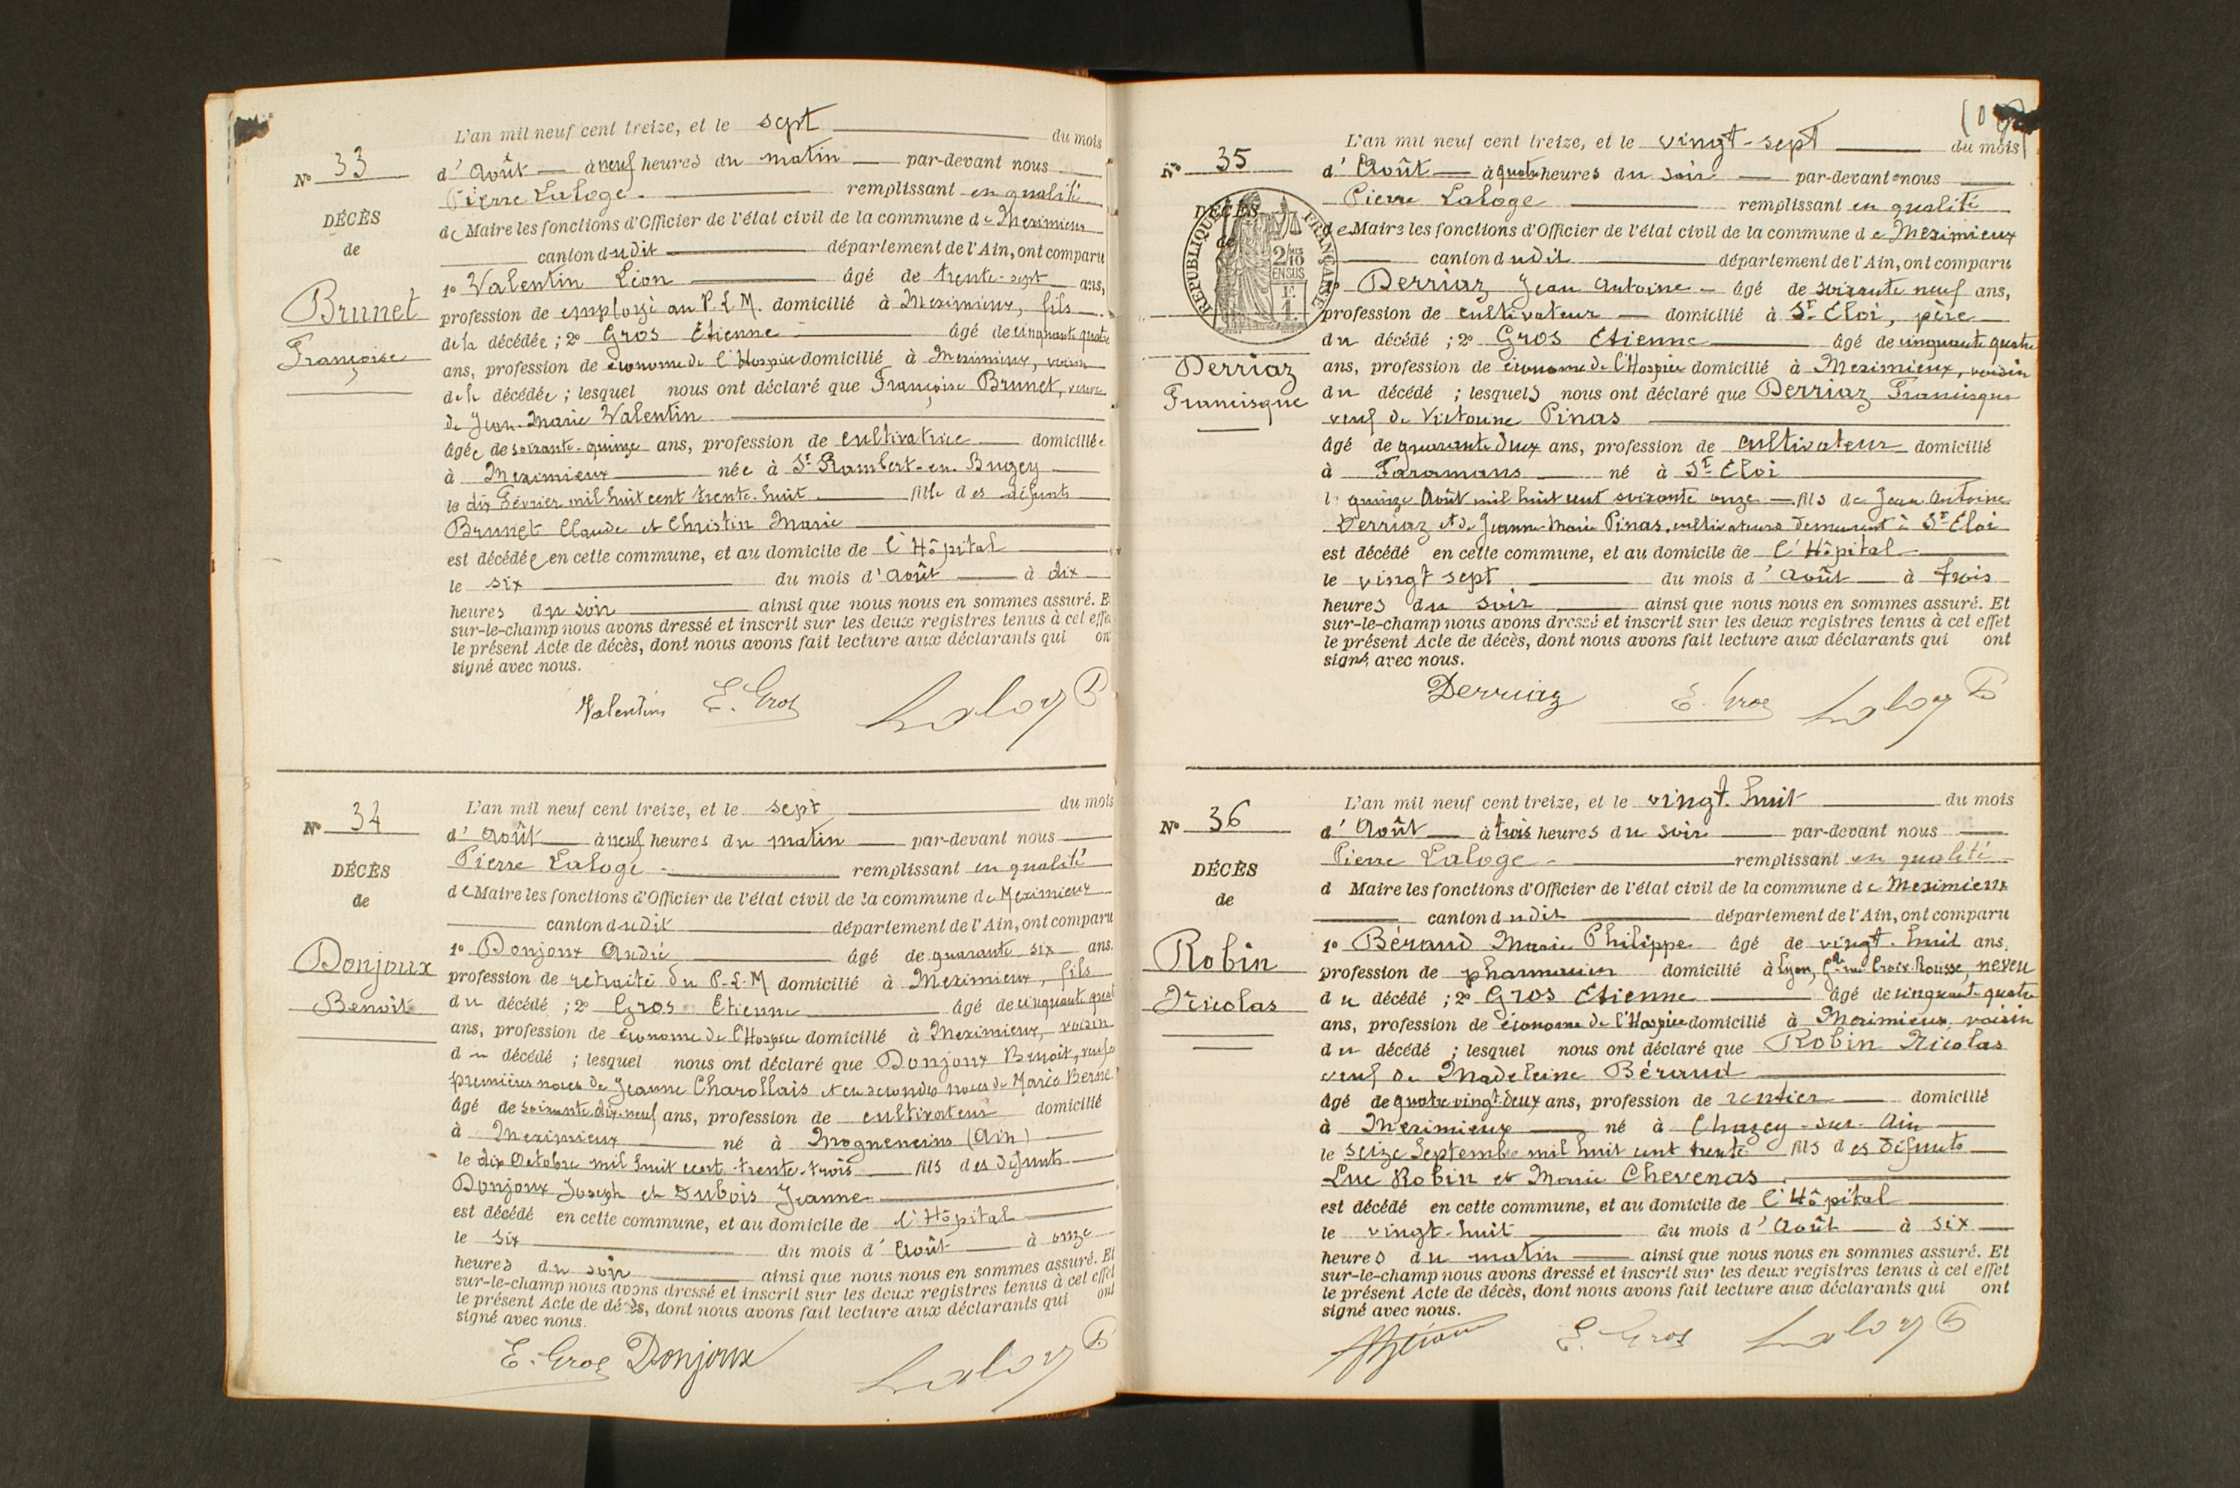 L'an mil neuf cent treize, et le sept du mois
N° 33
d'Août à neuf heures du matin par-devant nous
Pierre Laloge remplissant en qualité
DÉCÈS
de Maire les fonctions d'Officier de l'état civil de la commune de Meximieux
de
canton dudit département de l'Ain, ont comparu
1° Valentin Léon âgé de trente-sept ans,
Brunet
profession de employé au P.L.M. domicilié à Meximieux, fils
Françoise
de la décédée ; 2° Gros Etienne âgé de cinquante quatre
ans, profession de économe de l'Hospice domicilié à Meximieux, voisin
de la décédée ; lesquel nous ont déclaré que Françoise Brunet, veuve
de Jean-Marie Valentin
âgée de soixante-quinze ans, profession de cultivatrice domiciliée
à Meximieux née à St Rambert-en-Bugey
le dix Février mil huit cent trente-huit fille des défunts
Brunet Claude et Christin Marie
est décédée en cette commune, et au domicile de l'Hôpital
le six du mois d'août à dix
heures du soir ainsi que nous nous en sommes assuré. E
sur-le-champ nous avons dressé et inscrit sur les deux registres tenus à cet effe
le présent Acte de décès, dont nous avons fait lecture aux déclarants qui on
signé avec nous.
Valentin E. Gros Laloge P
L'an mil neuf cent treize, et le sept du mois
N° 34
d'Août à neuf heures du matin par-devant nous
Pierre Laloge remplissant en qualité
DÉCÈS
de Maire les fonctions d'Officier de l'état civil de la commune de Meximieux
de
canton dudit département de l'Ain, ont comparu
1° Donjoux André âgé de quarante six ans.
Donjoux
profession de retraité du P-L-M domicilié à Meximieux, fils
Benoit
du décédé ; 2° Gros Etienne âgé de cinquante quat
ans, profession de économe de l'Hospice domicilié à Meximieux, voisin
du décédé ; lesquel nous ont déclaré que Donjoux Benoit, veuf
premières noces de Jeanne Charollais et en secondes noces de Marie Berne
âgé de soixante-dix-neuf ans, profession de cultivateur domicilié
à Meximieux né à Mogneneins (Ain)
le dix Octobre mil huit cent trente-trois fils des défunts
Donjoux Joseph et Dubois Jeanne
est décédé en cette commune, et au domicile de l'Hôpital
le six du mois d'Août à onze
heures du soir ainsi que nous nous en sommes assuré. Et
sur-le-champ nous avons dressé et inscrit sur les deux registres tenus à cet effet
le présent Acte de décès, dont nous avons fait lecture aux déclarants qui ont
signé avec nous.
E. Gros Donjoux Laloge P
L'an mil neuf cent treize, et le vingt-sept du mois
N° 35
d'Août à quatre heures du soir par-devant nous
Pierre Laloge remplissant en qualité
DÉCÈS
de Maire les fonctions d'Officier de l'état civil de la commune de Meximieux
de
canton dudit département de l'Ain, ont comparu
RÉPUBLIQUE FRANÇAISE
2/10 EN SUS
F. 1.
1° Derriaz Jean Antoine âgé de soixante neuf ans,
profession de cultivateur domicilié à St Eloi, père
du décédé ; 2° Gros Etienne âgé de cinquante quatre
Derriaz
ans, profession de économe de l'Hospice domicilié à Meximieux, voisin
Francisque
du décédé ; lesquels nous ont déclaré que Derriaz Francisque
veuf de Victorine Pinas
âgé de quarante deux ans, profession de cultivateur domicilié
à Faramans né à St Eloi
le quinze Août mil huit cent soixante onze fils de Jean Antoine
Derriaz et de Jeanne-Marie Pinas, cultivateurs demeurant à St Eloi
est décédé en cette commune, et au domicile de l'Hôpital
le vingt sept du mois d'août à trois
heures du soir ainsi que nous nous en sommes assuré. Et
sur-le-champ nous avons dressé et inscrit sur les deux registres tenus à cet effet
le présent Acte de décès, dont nous avons fait lecture aux déclarants qui ont
signé avec nous.
Derriaz E. Gros Laloge P
L'an mil neuf cent treize, et le vingt-huit du mois
N° 36
d'Août à trois heures du soir par-devant nous
Pierre Laloge remplissant en qualité
DÉCÈS
d Maire les fonctions d'Officier de l'état civil de la commune de Meximieux
de
canton dudit département de l'Ain, ont comparu
1° Béraud Marie Philippe âgé de vingt-huit ans,
Robin
profession de pharmacien domicilié à Lyon, Gde rue Croix-Rousse, neveu
Nicolas
du décédé ; 2° Gros Etienne âgé de cinquante-quatre
ans, profession de économe de l'Hospice domicilié à Meximieux voisin
du décédé ; lesquel nous ont déclaré que Robin Nicolas
veuf de Madeleine Béraud
âgé de quatre vingt-deux ans, profession de rentier domicilié
à Meximieux né à Chazey-sur-Ain
le seize Septembre mil huit cent trente fils des défunts
Luc Robin et Marie Chevenas
est décédé en cette commune, et au domicile de l'Hôpital
le vingt-huit du mois d'Août à six
heures du matin ainsi que nous nous en sommes assuré. Et
sur-le-champ nous avons dressé et inscrit sur les deux registres tenus à cet effet
le présent Acte de décès, dont nous avons fait lecture aux déclarants qui ont
signé avec nous.
E. Gros Laloge P